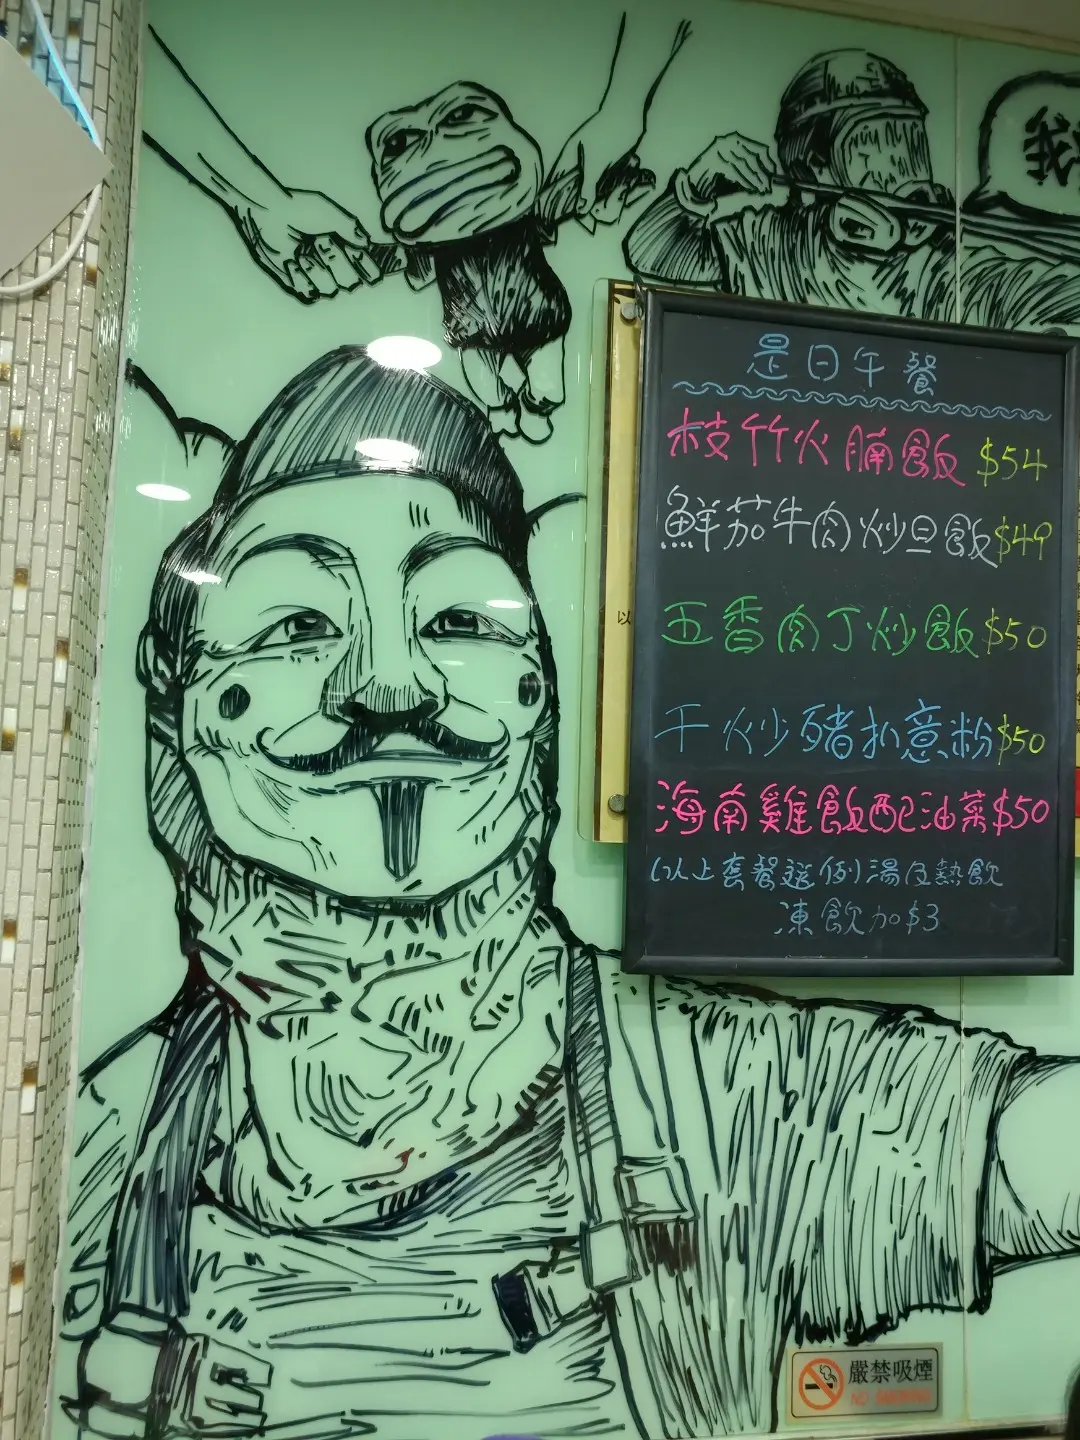 我
是日午餐
枝竹火腩飯 $54
鮮茄牛肉炒旦飯 $49
五香肉丁炒飯 $50
干炒豬扒意粉 $50
海南雞飯配油菜 $50
以上套餐送例湯及熱飲
凍飲加$3
以
嚴禁吸煙
NO SMOKING